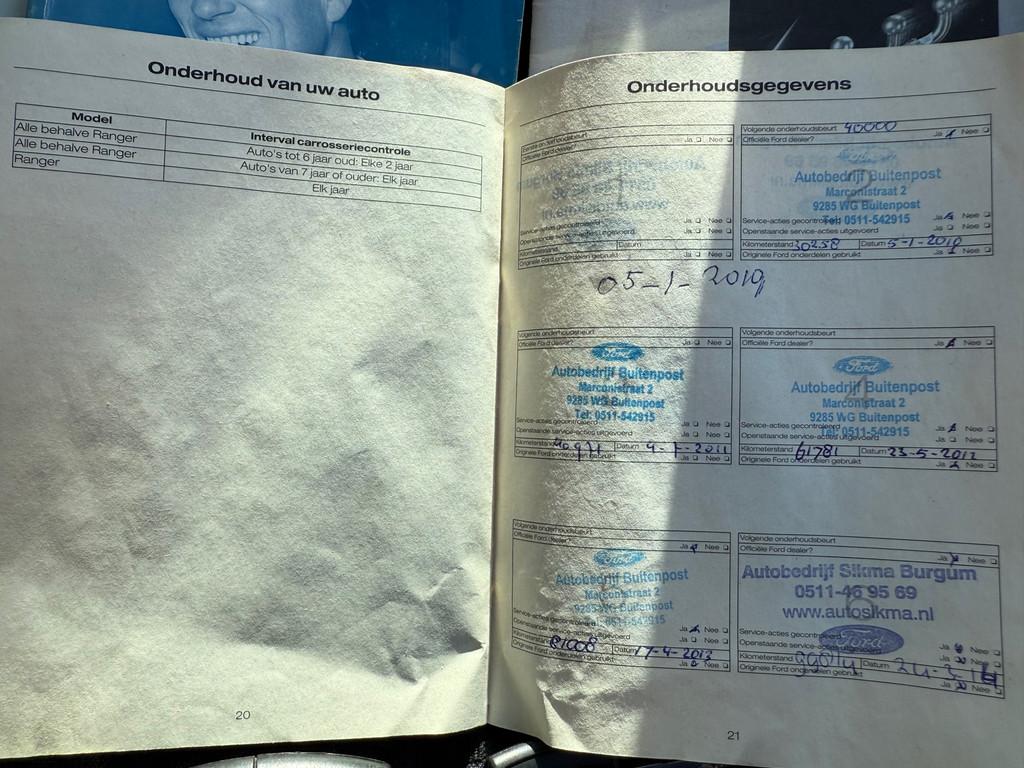 Onderhoud van uw auto
Model
Interval carrosseriecontrole
Alle behalve Ranger
Auto's tot 6 jaar oud: Elke 2 jaar
Alle behalve Ranger
Auto's van 7 jaar of ouder: Elk jaar
Ranger
Elk jaar
20
Onderhoudsgegevens
Officiële Ford dealer?
Ja Nee
Service-acties gecontroleerd
Ja Nee
Openstaande service-acties uitgevoerd
Ja Nee
Kilometerstand Datum
Originele Ford onderdelen gebruikt
Ja Nee
05-1-2010
Volgende onderhoudsbeurt 40000
Officiële Ford dealer?
Ja Nee
Autobedrijf Buitenpost
Marconistraat 2
9285 WG Buitenpost
Tel: 0511-542915
Service-acties gecontroleerd
Ja Nee
Openstaande service-acties uitgevoerd
Ja Nee
Kilometerstand 30258 Datum 5-1-2010
Originele Ford onderdelen gebruikt
Ja Nee
Volgende onderhoudsbeurt
Officiële Ford dealer?
Ja Nee
Ford
Autobedrijf Buitenpost
Marconistraat 2
9285 WG Buitenpost
Tel: 0511-542915
Service-acties gecontroleerd
Ja Nee
Openstaande service-acties uitgevoerd
Ja Nee
Kilometerstand Datum 4-1-2011
Originele Ford onderdelen gebruikt
Ja Nee
Volgende onderhoudsbeurt
Officiële Ford dealer?
Ja Nee
Ford
Autobedrijf Buitenpost
Marconistraat 2
9285 WG Buitenpost
Tel: 0511-542915
Service-acties gecontroleerd
Ja Nee
Openstaande service-acties uitgevoerd
Ja Nee
Kilometerstand 61781 Datum 23-5-2012
Originele Ford onderdelen gebruikt
Ja Nee
Volgende onderhoudsbeurt
Officiële Ford dealer?
Ja Nee
Ford
Autobedrijf Buitenpost
Marconistraat 2
9285 WG Buitenpost
Tel: 0511-542915
Service-acties gecontroleerd
Ja Nee
Openstaande service-acties uitgevoerd
Ja Nee
Kilometerstand 81008 Datum 17-4-2013
Originele Ford onderdelen gebruikt
Ja Nee
Volgende onderhoudsbeurt
Officiële Ford dealer?
Ja Nee
Autobedrijf Sikma Burgum
0511-46 95 69
www.autosikma.nl
Ford
Service-acties gecontroleerd
Ja Nee
Openstaande service-acties uitgevoerd
Ja Nee
Kilometerstand Datum 24-3-14
Originele Ford onderdelen gebruikt
Ja Nee
21